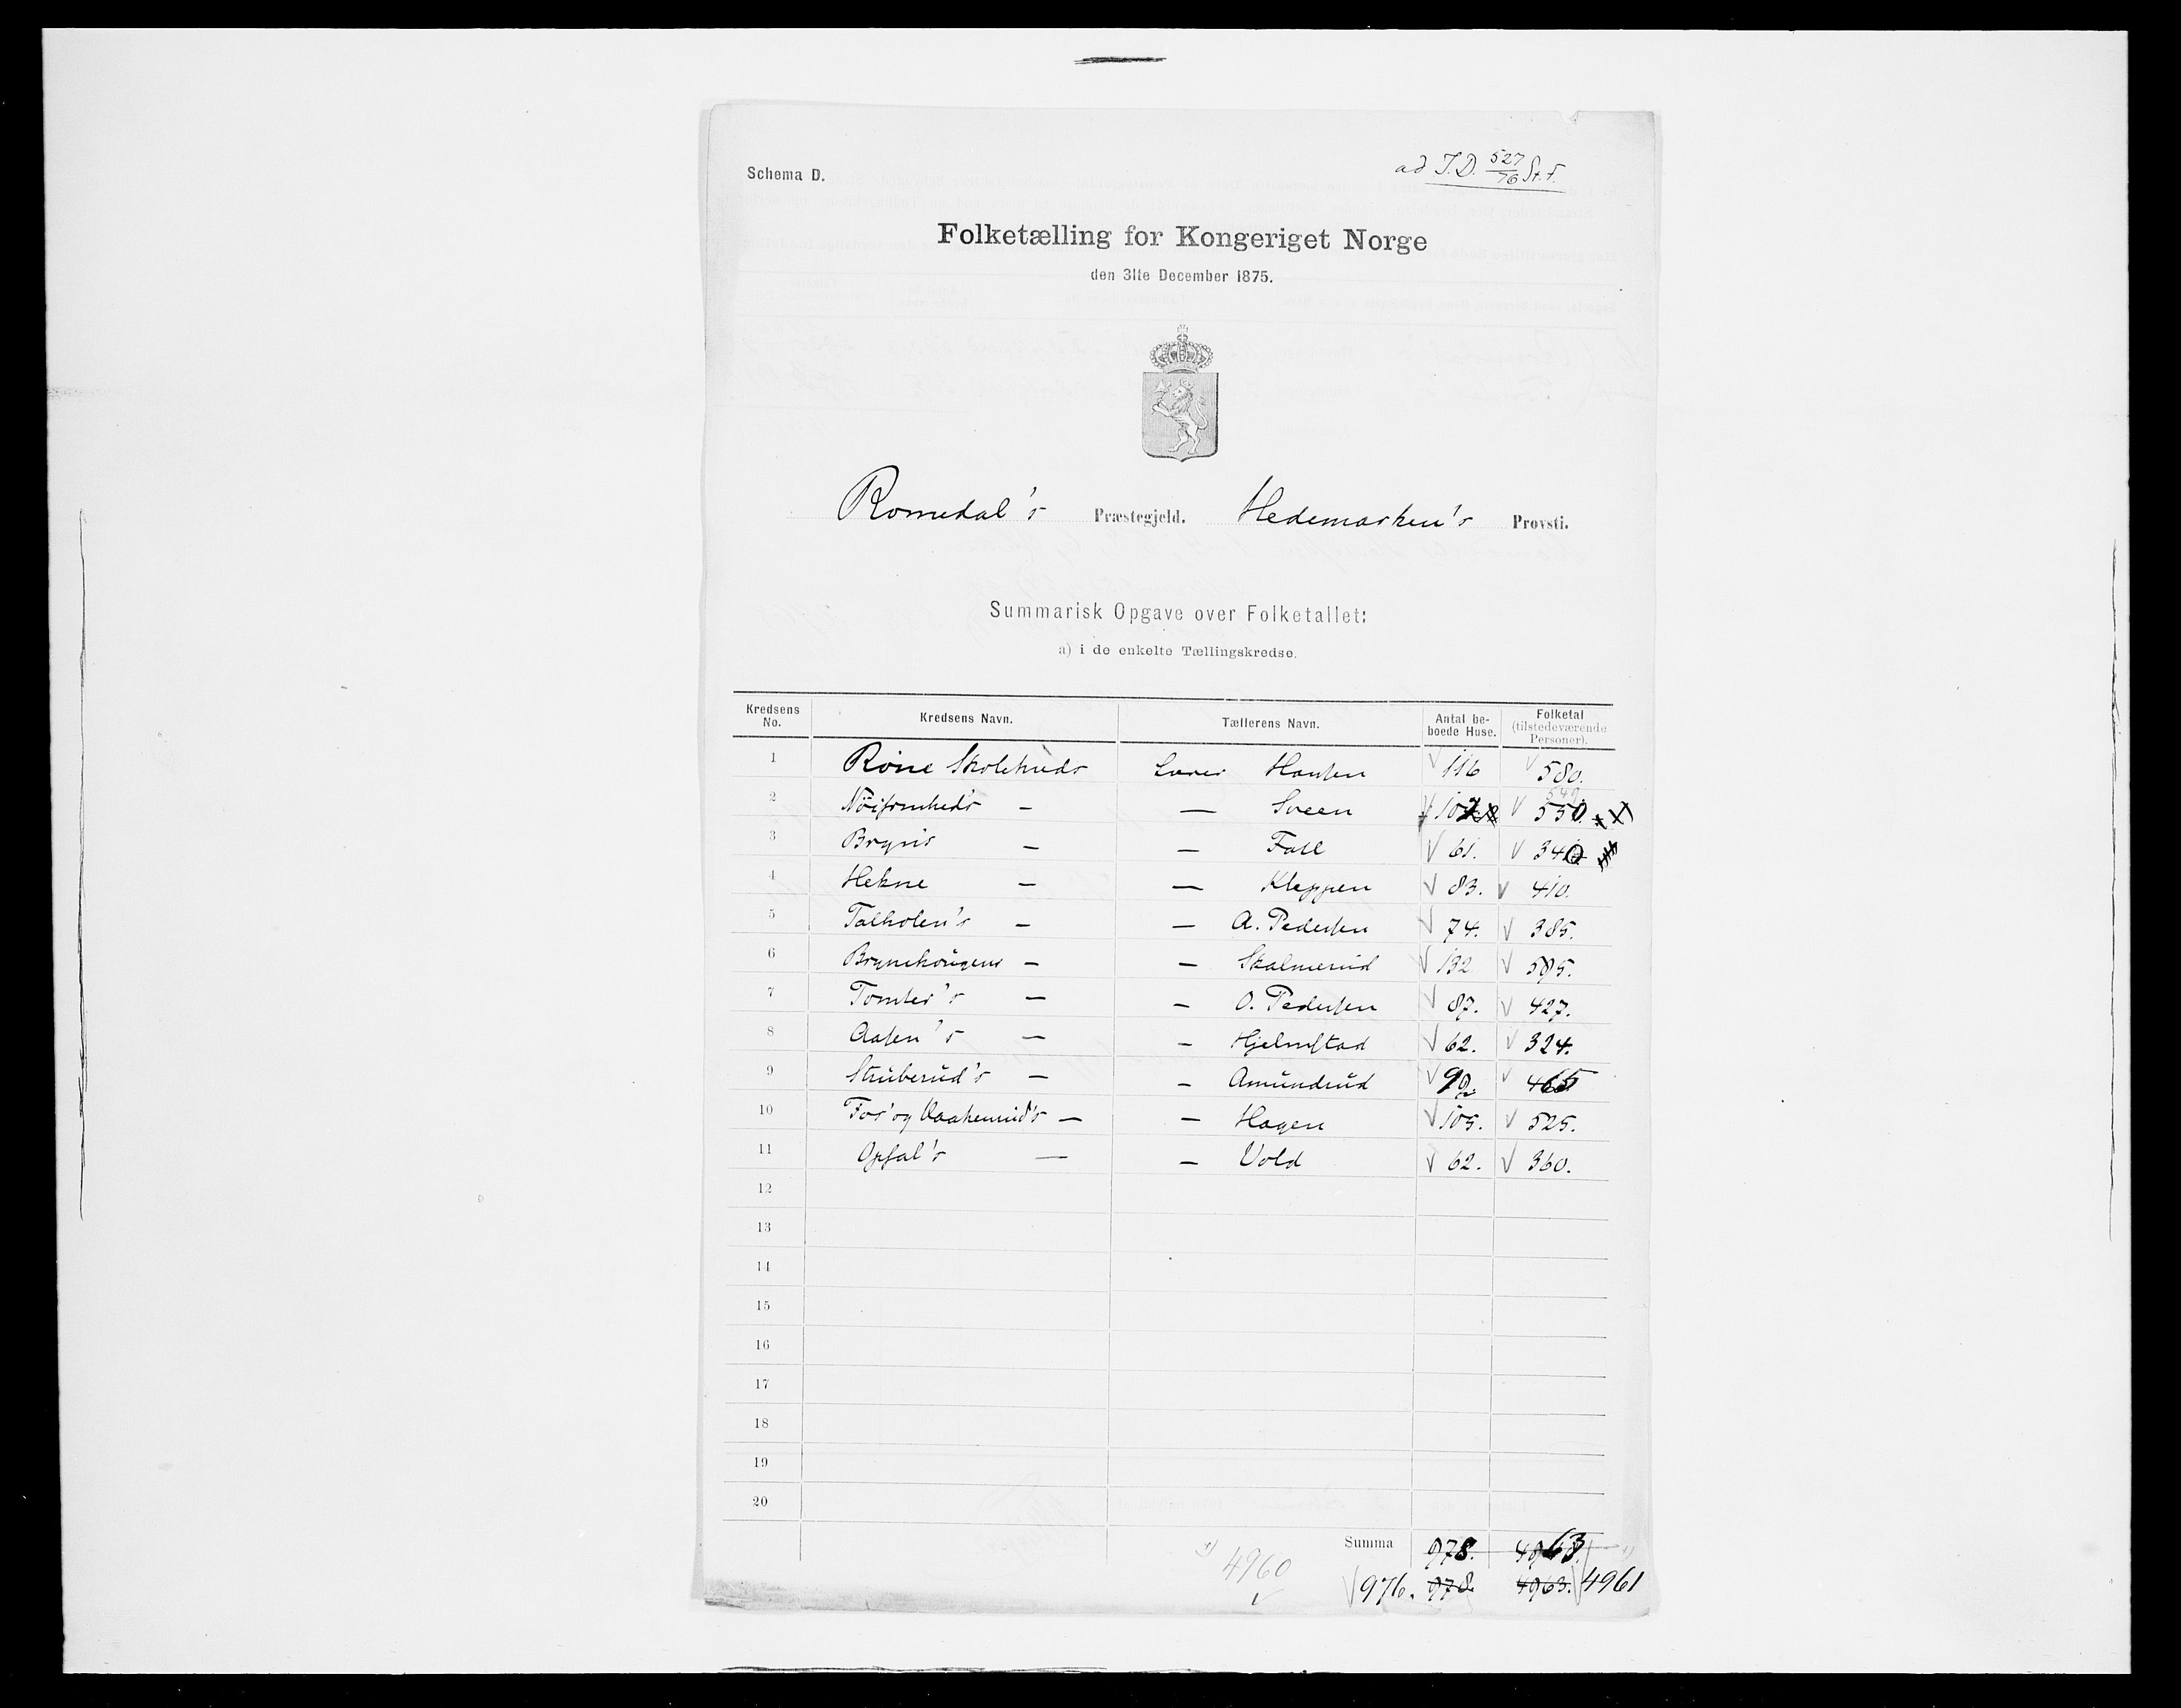 ad J.D. 527/76 St.F.
Schema D.
Folketælling for Kongeriget Norge
den 31te December 1875.
Romedal's Præstegjeld. Hedemarken's Provsti.
Summarisk Opgave over Folketallet:
a) i de enkelte Tællingskredse.
Kredsens No. Kredsens Navn. Tællerens Navn. Antal beboede Huse. Folketal (tilstedeværende Personer).
1 Skolekreds Lærer Hansen 116 580.
549
2 — — Sveen 550.
3 — — 61. 340
4 Hekne — — Kleppen 83. 410.
5 — — A. Pedersen 74. 385.
6 — — Skalmerud 132 595.
7 Tomter's — — O. Pedersen 87. 427.
8 Aasen's — — Hjelmstad 62. 324.
9 Struberud's — — Amundrud 465
10 Fos' og — — Hagen 105. 525.
11 Opsal's — — Vold 62. 360.
12
13
14
15
16
17
18
19
20
Summa 978. 4963.
4960 976. 978 4963. 4961